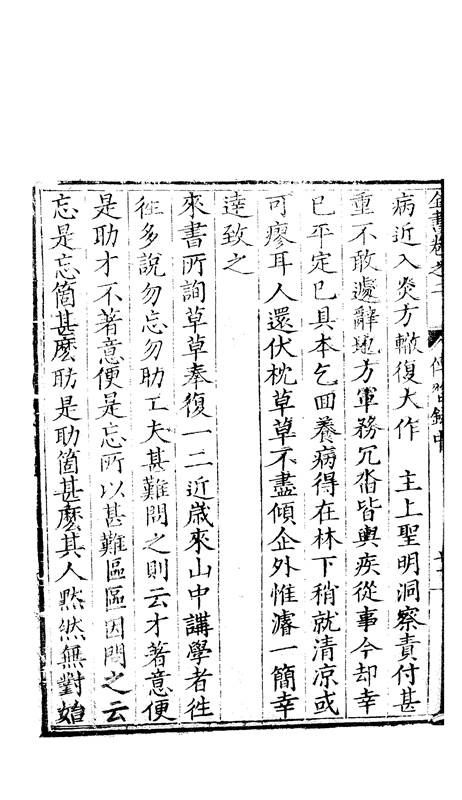 全書卷之二　傳習錄中
病近入炎方輙復大作　主上聖明洞察責付甚
重不敢遽辭地方軍務冗沓皆輿疾從事今却幸
已平定已具本乞回養病得在林下稍就清凉或
可瘳耳人還伏枕草草不盡傾企外惟濬一簡幸
達致之
來書所詢草草奉復一二近歳來山中講學者徃
徃多說勿忘勿助工夫甚難問之則云才著意便
是助才不著意便是忘所以甚難區區因問之云
忘是忘箇甚麽助是助箇甚麽其人黙然無對始